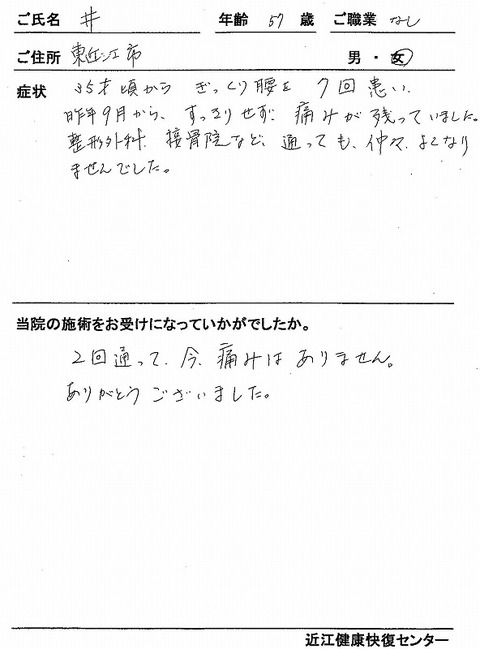 ご氏名 井 年齢 57 歳 ご職業 なし
ご住所 東近江市 男・女
症状 35才頃から ぎっくり腰を 7回患い、
昨年9月から、すっきりせず、痛みが残っていました。
整形外科、接骨院など、通っても、仲々、よくなり
ませんでした。
当院の施術をお受けになっていかがでしたか。
2回通って、今、痛みはありません。
ありがとうございました。
近江健康快復センター